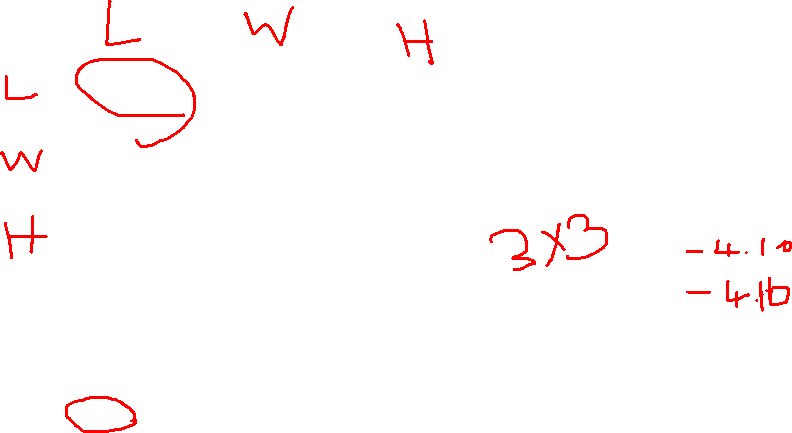 L W H
L
W
H
3x3
-4.10
-4.10